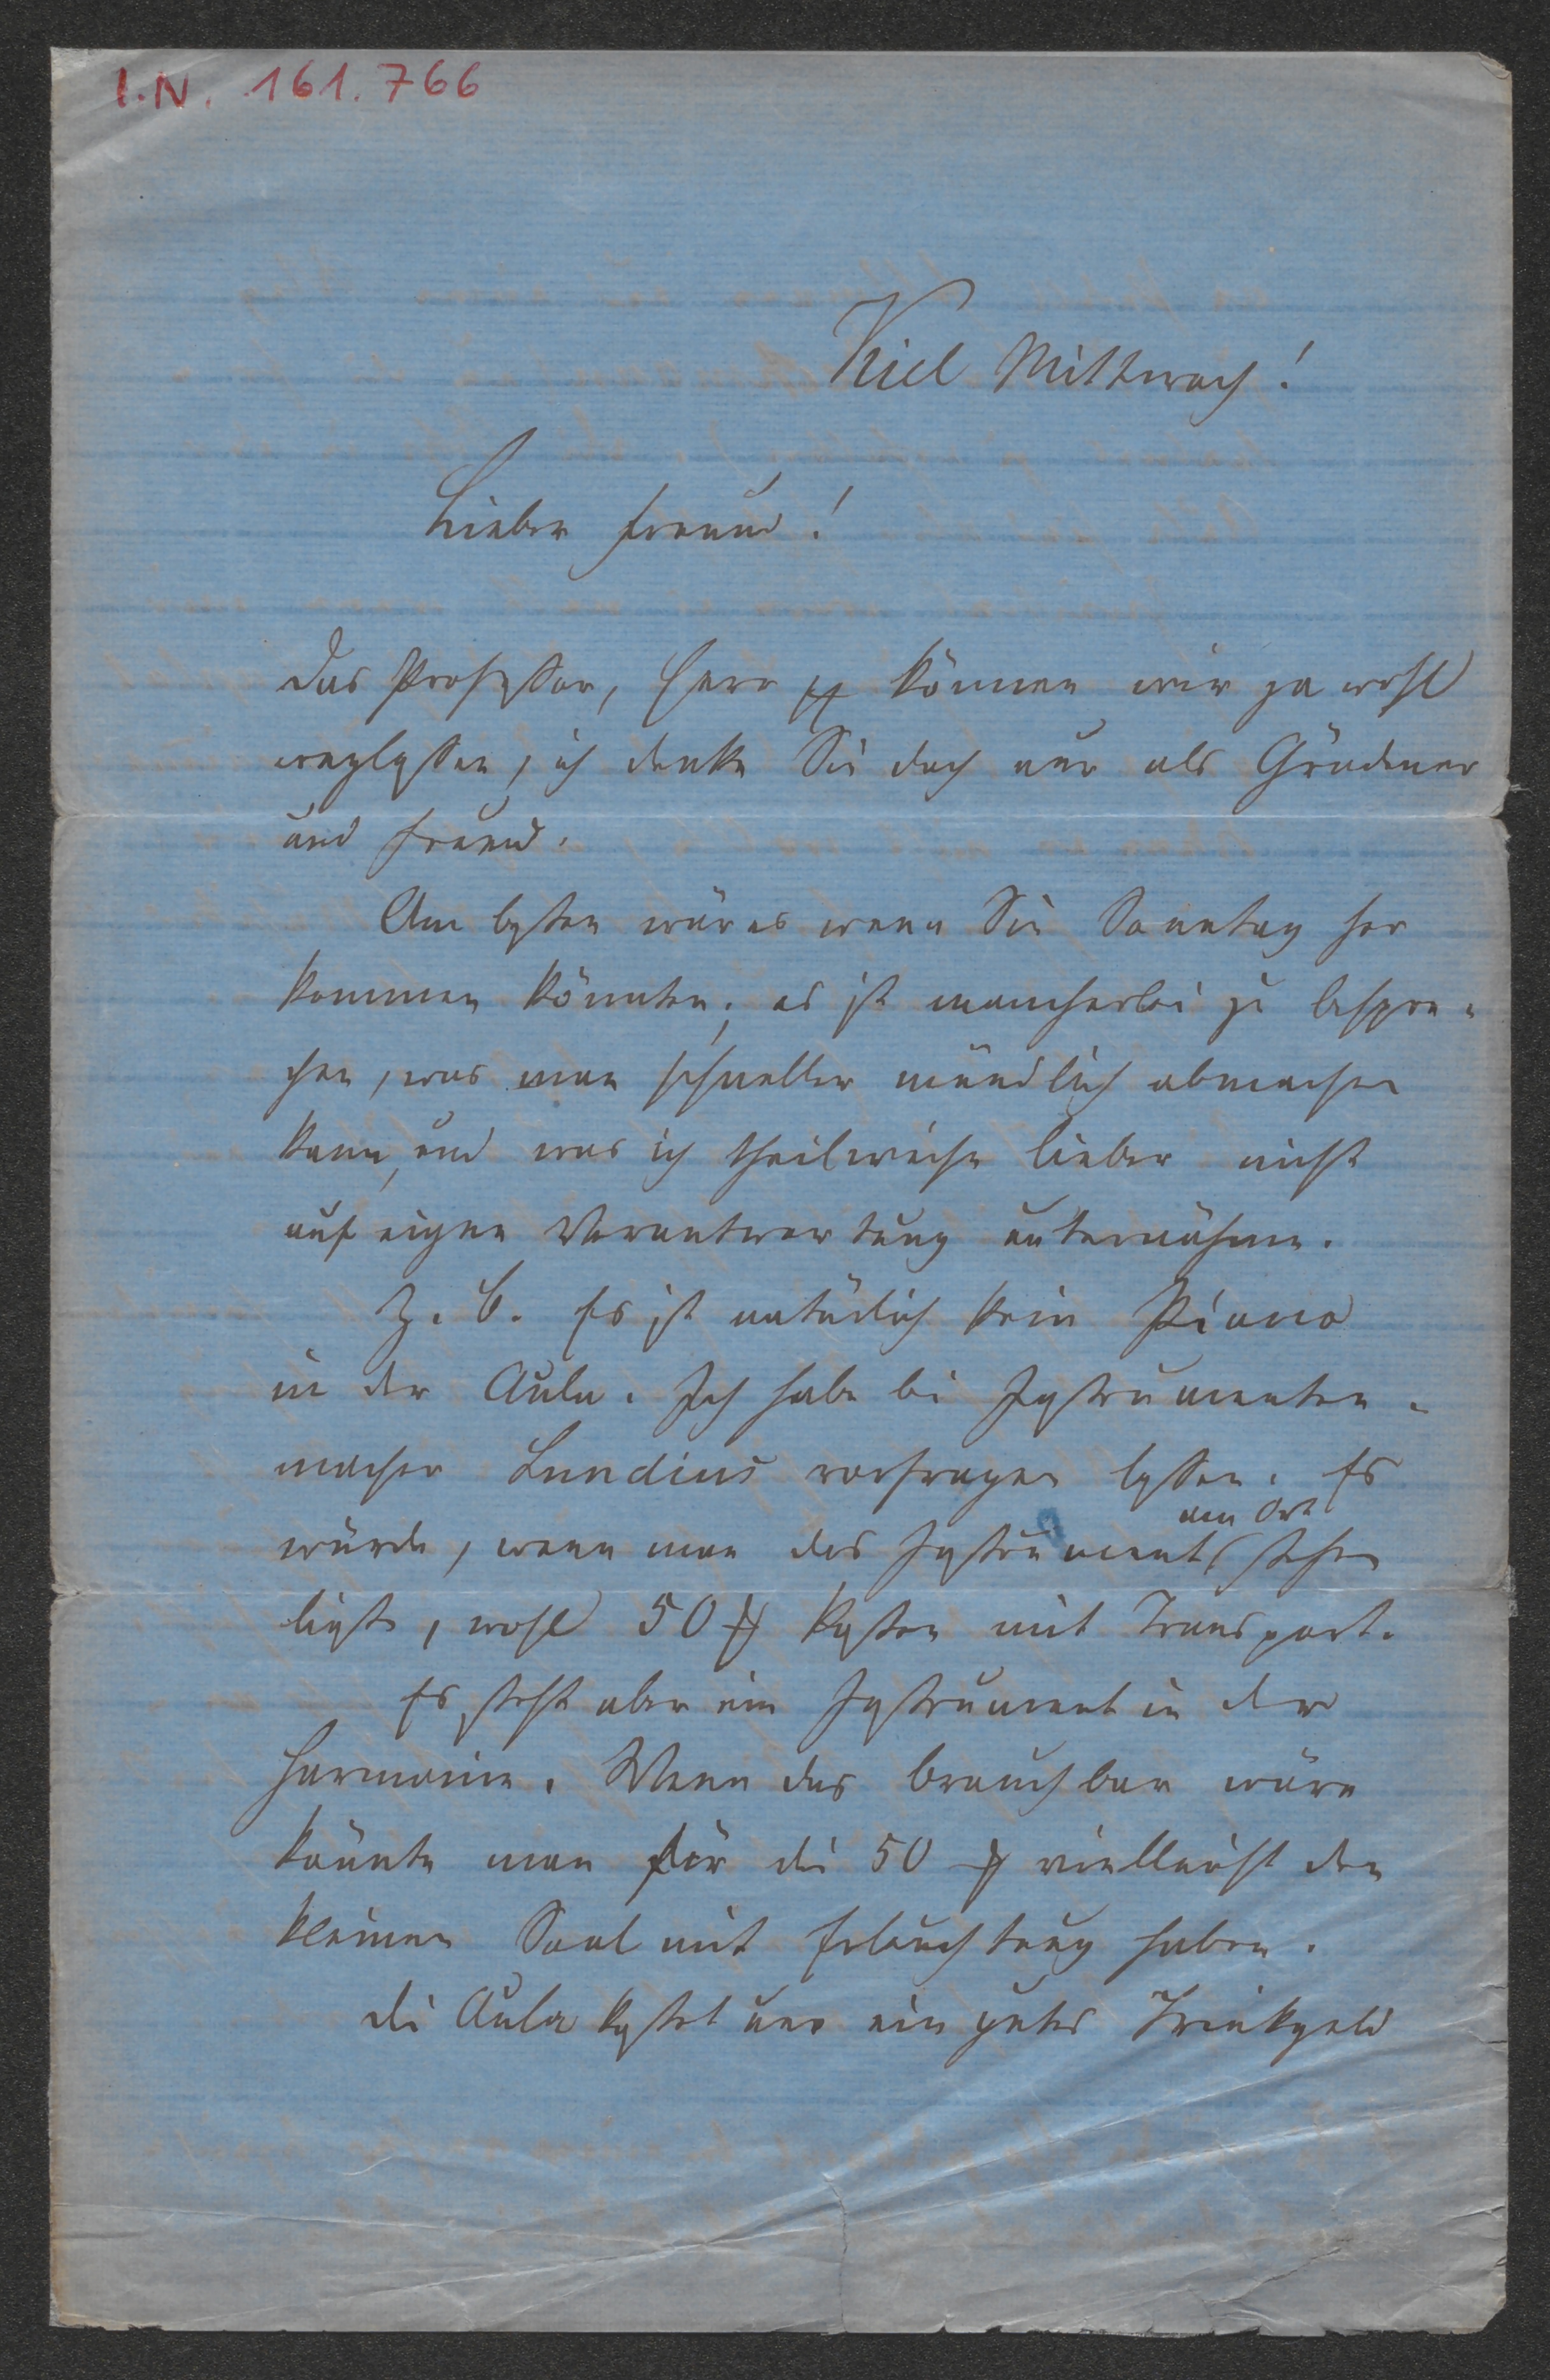 I.N. 161.766
Kiel Mittwoch!
Lieber Freund!
Das Professor, Herr pp können wir ja wohl
weglassen, ich denke Sie doch nur als Grädener
und Freund.
Am besten wär es wenn Sie Sonntag her
kommen könnten; es ist mancherlei zu bespre-
chen, was man schneller mündlich abmachen
kann, und was ich theilweise lieber nicht
auf eigne Verantwortung unternähme.
Z. B. Es ist natürlich kein Piano
in der Aula. Ich habe bei Instrumenten-
macher Lundius vorfragen lassen. Es
würde, wenn man das Instrument am Ort stehn
ließe, wohl 50 ₰ kosten mit Transport.
Es steht aber ein Instrument in der
Harmonie. Wenn das brauchbar wäre
könnte man für die 50 ₰ vielleicht den
kleinen Saal mit Erleuchtung haben.
Die Aula kostet nur ein gutes Trinkgeld